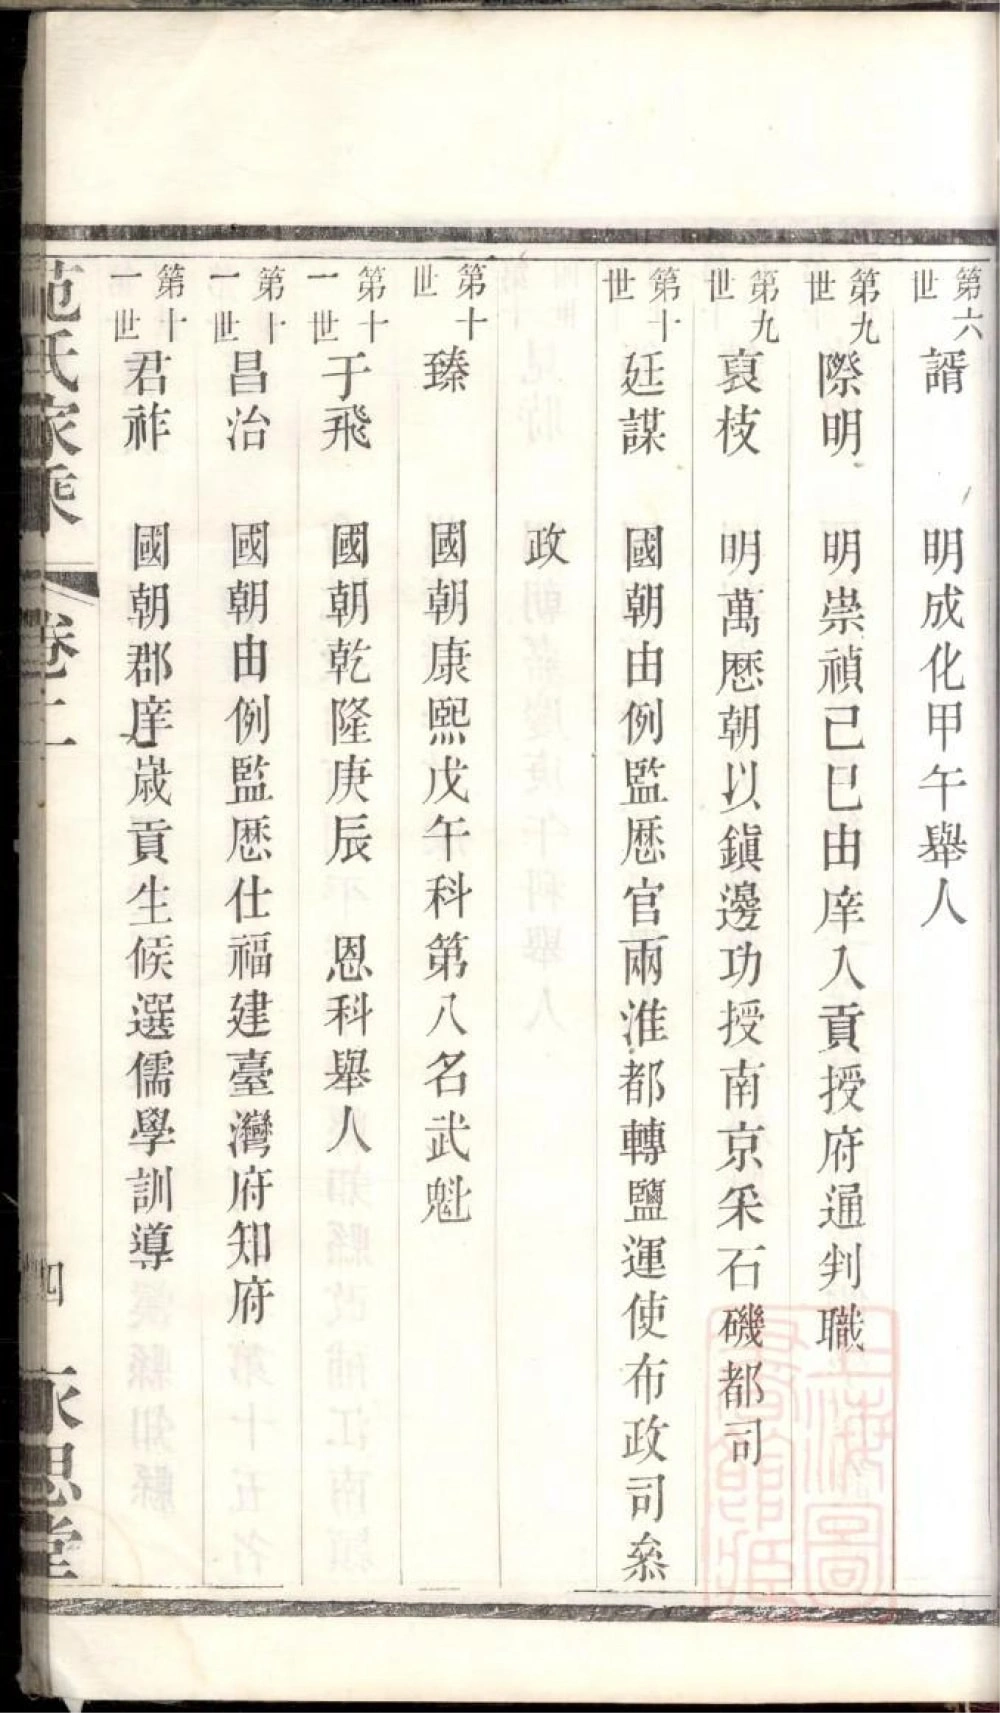 第六世 諝 明成化甲午舉人
第九世 際明 明崇禎己巳由庠入貢授府通判職
第九世 裒枝 明萬厯朝以鎭邊功授南京采石磯都司
第十世 廷謀 國朝由例監厯官兩淮都轉鹽運使布政司叅
政
第十世 臻 國朝康熙戊午科第八名武魁
第十一世 于飛 國朝乾隆庚辰 恩科舉人
第十一世 昌治 國朝由例監厯仕福建臺灣府知府
第十一世 君祚 國朝郡庠歲貢生候選儒學訓導
范氏家乘 卷二 四 永思堂
上海圖書館藏